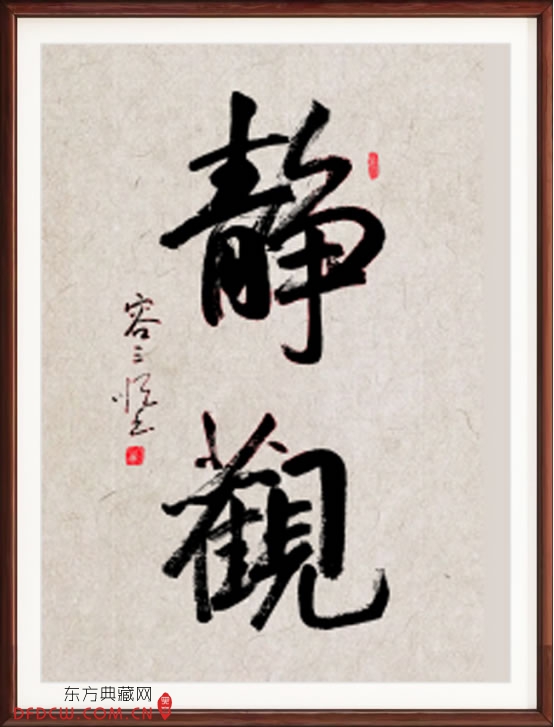 静觀
东方典藏网
DFDCW.COM.CN